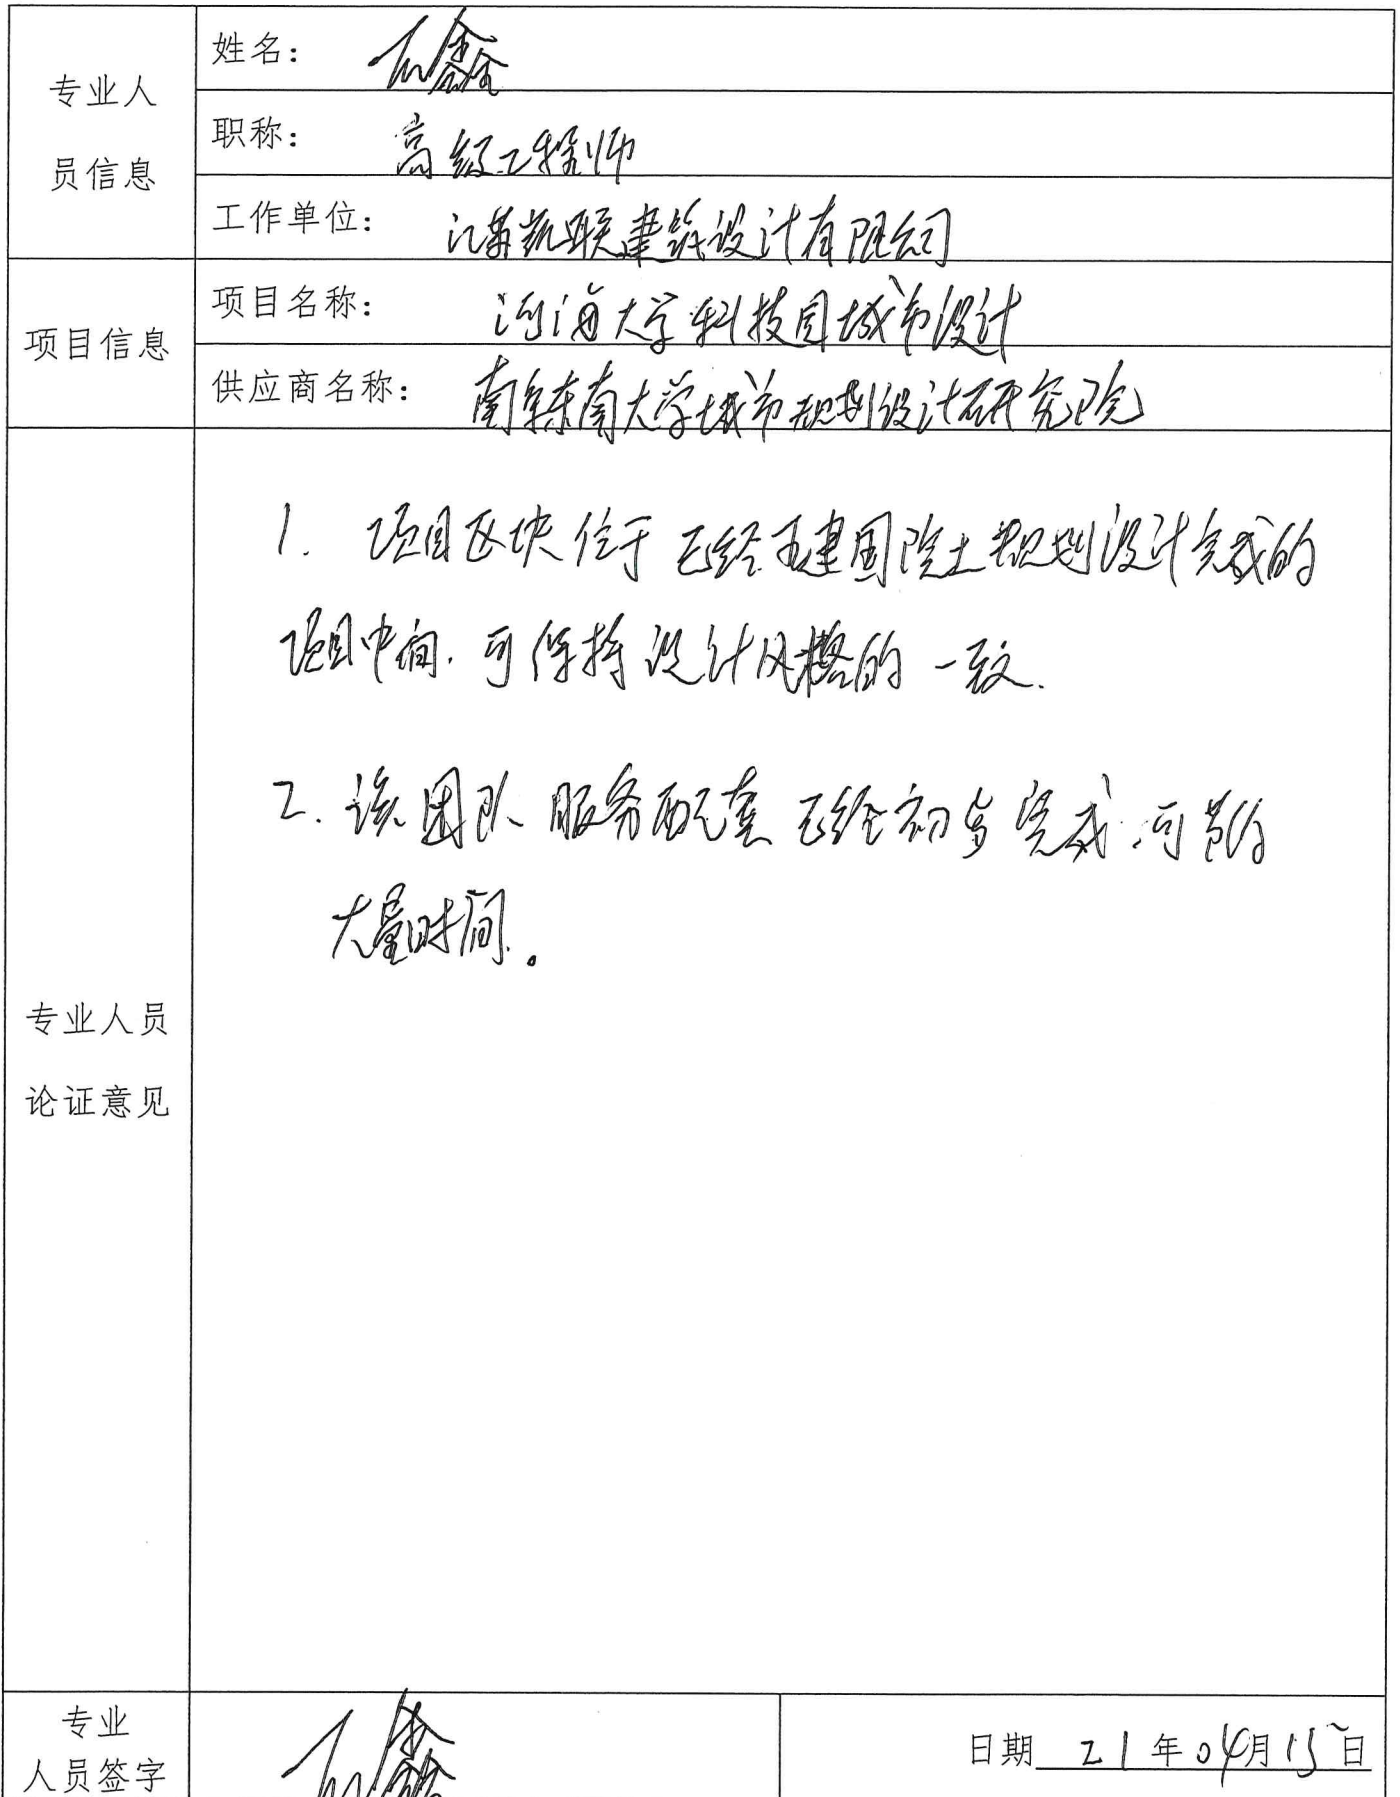 专业人
员信息
姓名：鑫
职称：高级工程师
工作单位：江苏凯联建筑设计有限公司
项目信息
项目名称：河海大学科技园城市设计
供应商名称：南京东南大学城市规划设计研究院
专业人员
论证意见
1. 项目区块位于已经王建国院士规划设计完成的
项目中间.可保持设计风格的一致.
2. 该团队服务配套已经初步完成.可节约
大量时间。
专业
人员签字
鑫
日期 21年04月15日